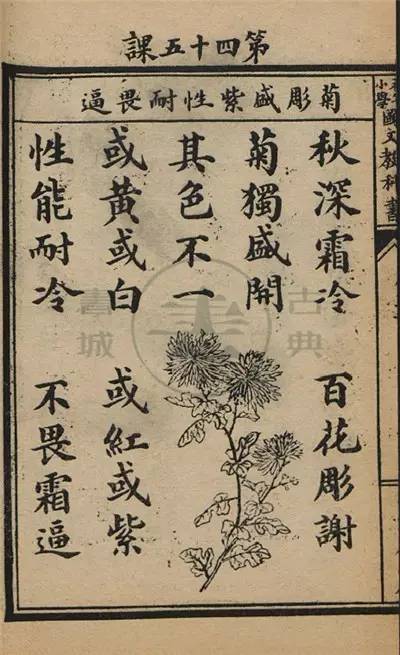 第四十五課
菊彫盛紫性耐畏逼
小學國文教科書
秋深霜冷 百花彫謝
菊獨盛開
其色不一
或黃或白 或紅或紫
性能耐冷 不畏霜逼
古典書城